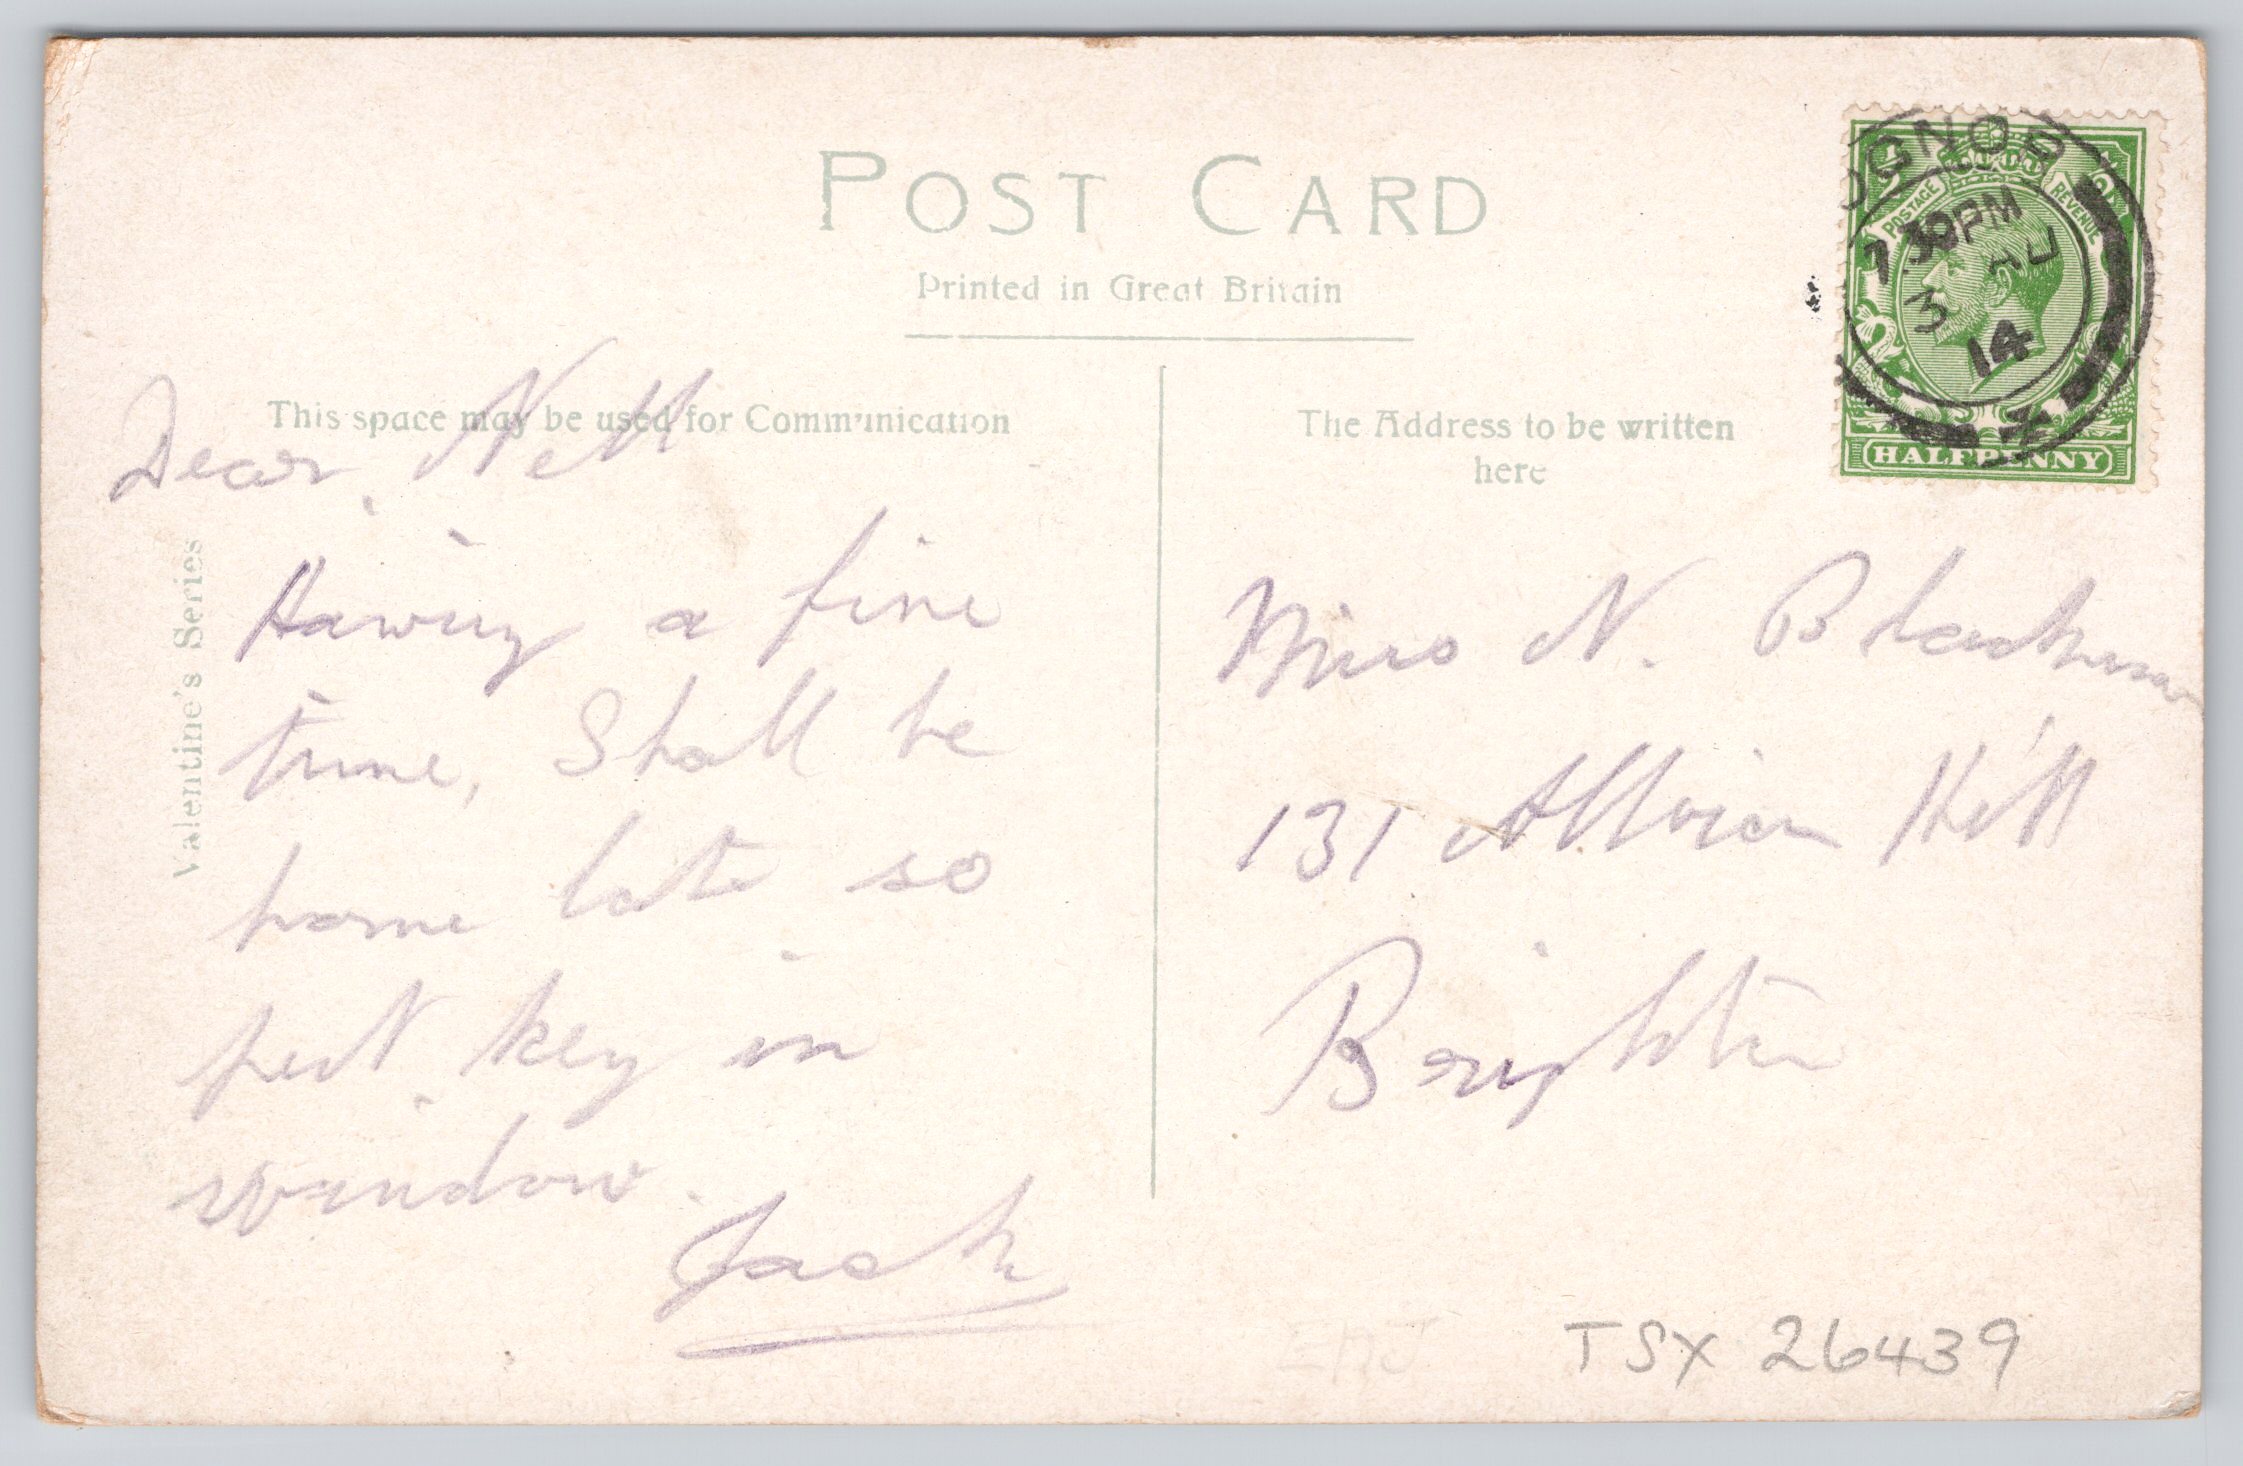 POST CARD
Printed in Great Britain
This space may be used for Communication
The Address to be written
here
Valentine's Series
Dear Nell
Having a fine
time, Shall be
home late so
put key in
window.
Jack
Miss N. Blackman
131 Albion Hill
Brighton
OGNOR
7.30PM
3 AU
14
POSTAGE
REVENUE
HALFPENNY
TSX 26439